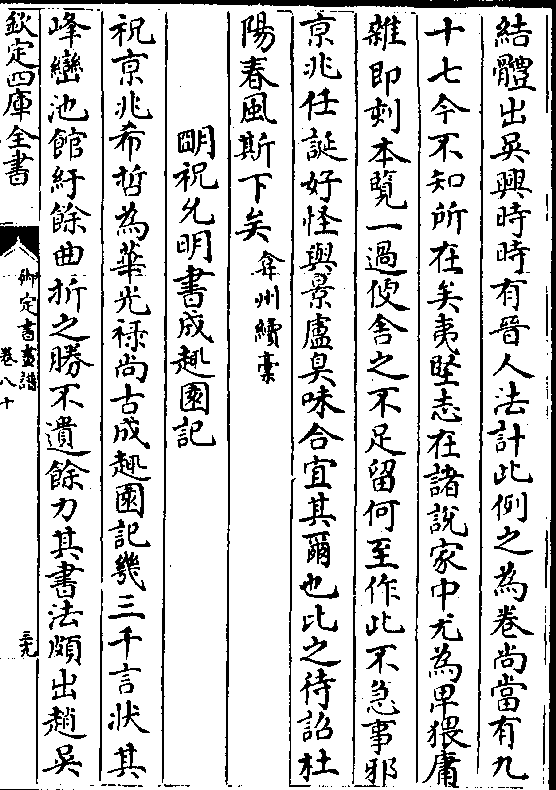 結體出吳興時時有晉人法計此例之為卷尚當有九
十七今不知所在矣夷堅志在諸說家中尤為卑猥庸
雜即刻本覽一過便舍之不足留何至作此不急事邪
京兆任誕好怪與景盧臭味合宜其爾也比之待詔杜
陽春風斯下矣弇州續稾
明祝允明書成趣園記
祝京兆希哲為華光祿尚古成趣園記幾三千言狀其
峰巒池館紆餘曲折之勝不遺餘力其書法頗出趙吳
欽定四庫全書
御定書畫譜
卷八十
三九